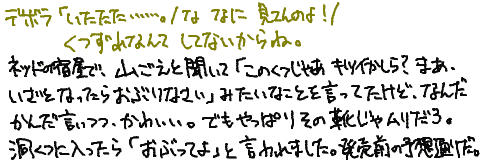 デボラ「いたたた……。/な なに 見てんのよ!/
くつずれなんて してないからね。
ネッドの宿屋で、山ごえと聞いて「このくつじゃあ キツイかしら?まあ、
いざとなったらおぶりなさい」みたいなことを言ってたけど、なんだ
かんだ言いつつ、かわいい。でもやっぱりその靴じゃムリだろ。
洞くつに入ったら「おぶってよ」と言われました。発売前の予想通りだ。